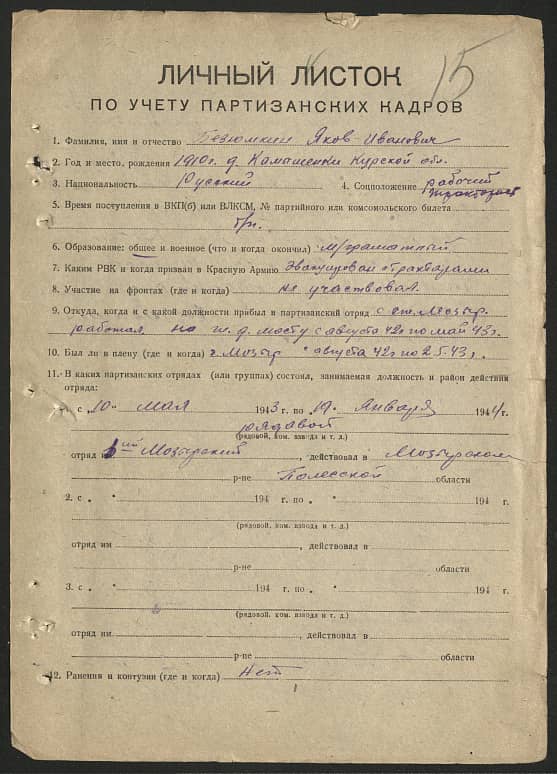 15
ЛИЧНЫЙ ЛИСТОК
ПО УЧЕТУ ПАРТИЗАНСКИХ КАДРОВ
1. Фамилия, имя и отчество Безюмкин Яков Иванович
2. Год и место, рождения 1910 г. д. Камашенки Курской обл.
3. Национальность Русский 4. Соцположение рабочий
тракторист
5. Время поступления в ВКП(б) или ВЛКСМ, № партийного или комсомольского билета
б/п.
6. Образование: общее и военное (что и когда окончил) м/грамотный
7. Каким РВК и когда призван в Красную Армию Эвакуирован с тракторами
8. Участие на фронтах (где и когда) не участвовал
9. Откуда, когда и с какой должности прибыл в партизанский отряд с ст. Мозыр.
работал на ж. д. мосту с августа 42 г по май 43 г.
10. Был ли в плену (где и когда) г. Мозыр с августа 42 г по 2.5.43 г.
11. В каких партизанских отрядах (или группах) состоял, занимаемая должность и район действия
отряда:
1. с „ 10 " мая 1943 г. по „ 19 " Января 1944 г.
рядовой
(рядовой, ком. взвода и т. д.)
отряд им 1ый Мозырский, действовал в Мозырском
р-не Полесской области
2. с „ " 194 г. по „ " 194 г.
(рядовой, ком. взвода и т. д.)
отряд им , действовал в
р-не области
3. с „ " 194 г. по „ " 194 г.
(рядовой, ком. взвода и т. д.)
отряд им , действовал в
р-не области
12. Ранения и контузии (где и когда) Нет